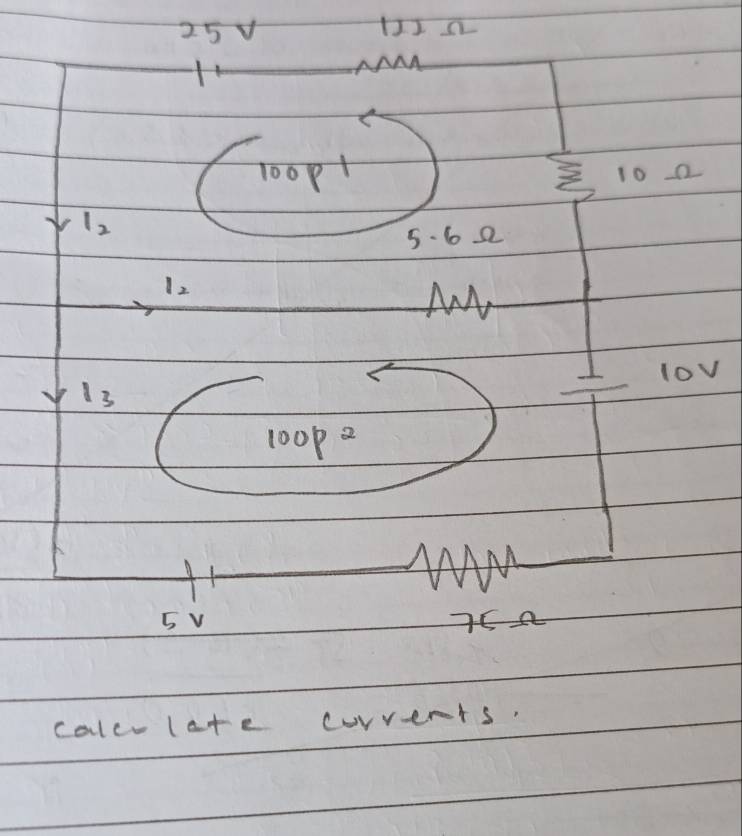 25 V
loop 1
10 Ω
5.6 Ω
I₂
I₂
10V
I₃
loop 2
5 V
calculate currents.